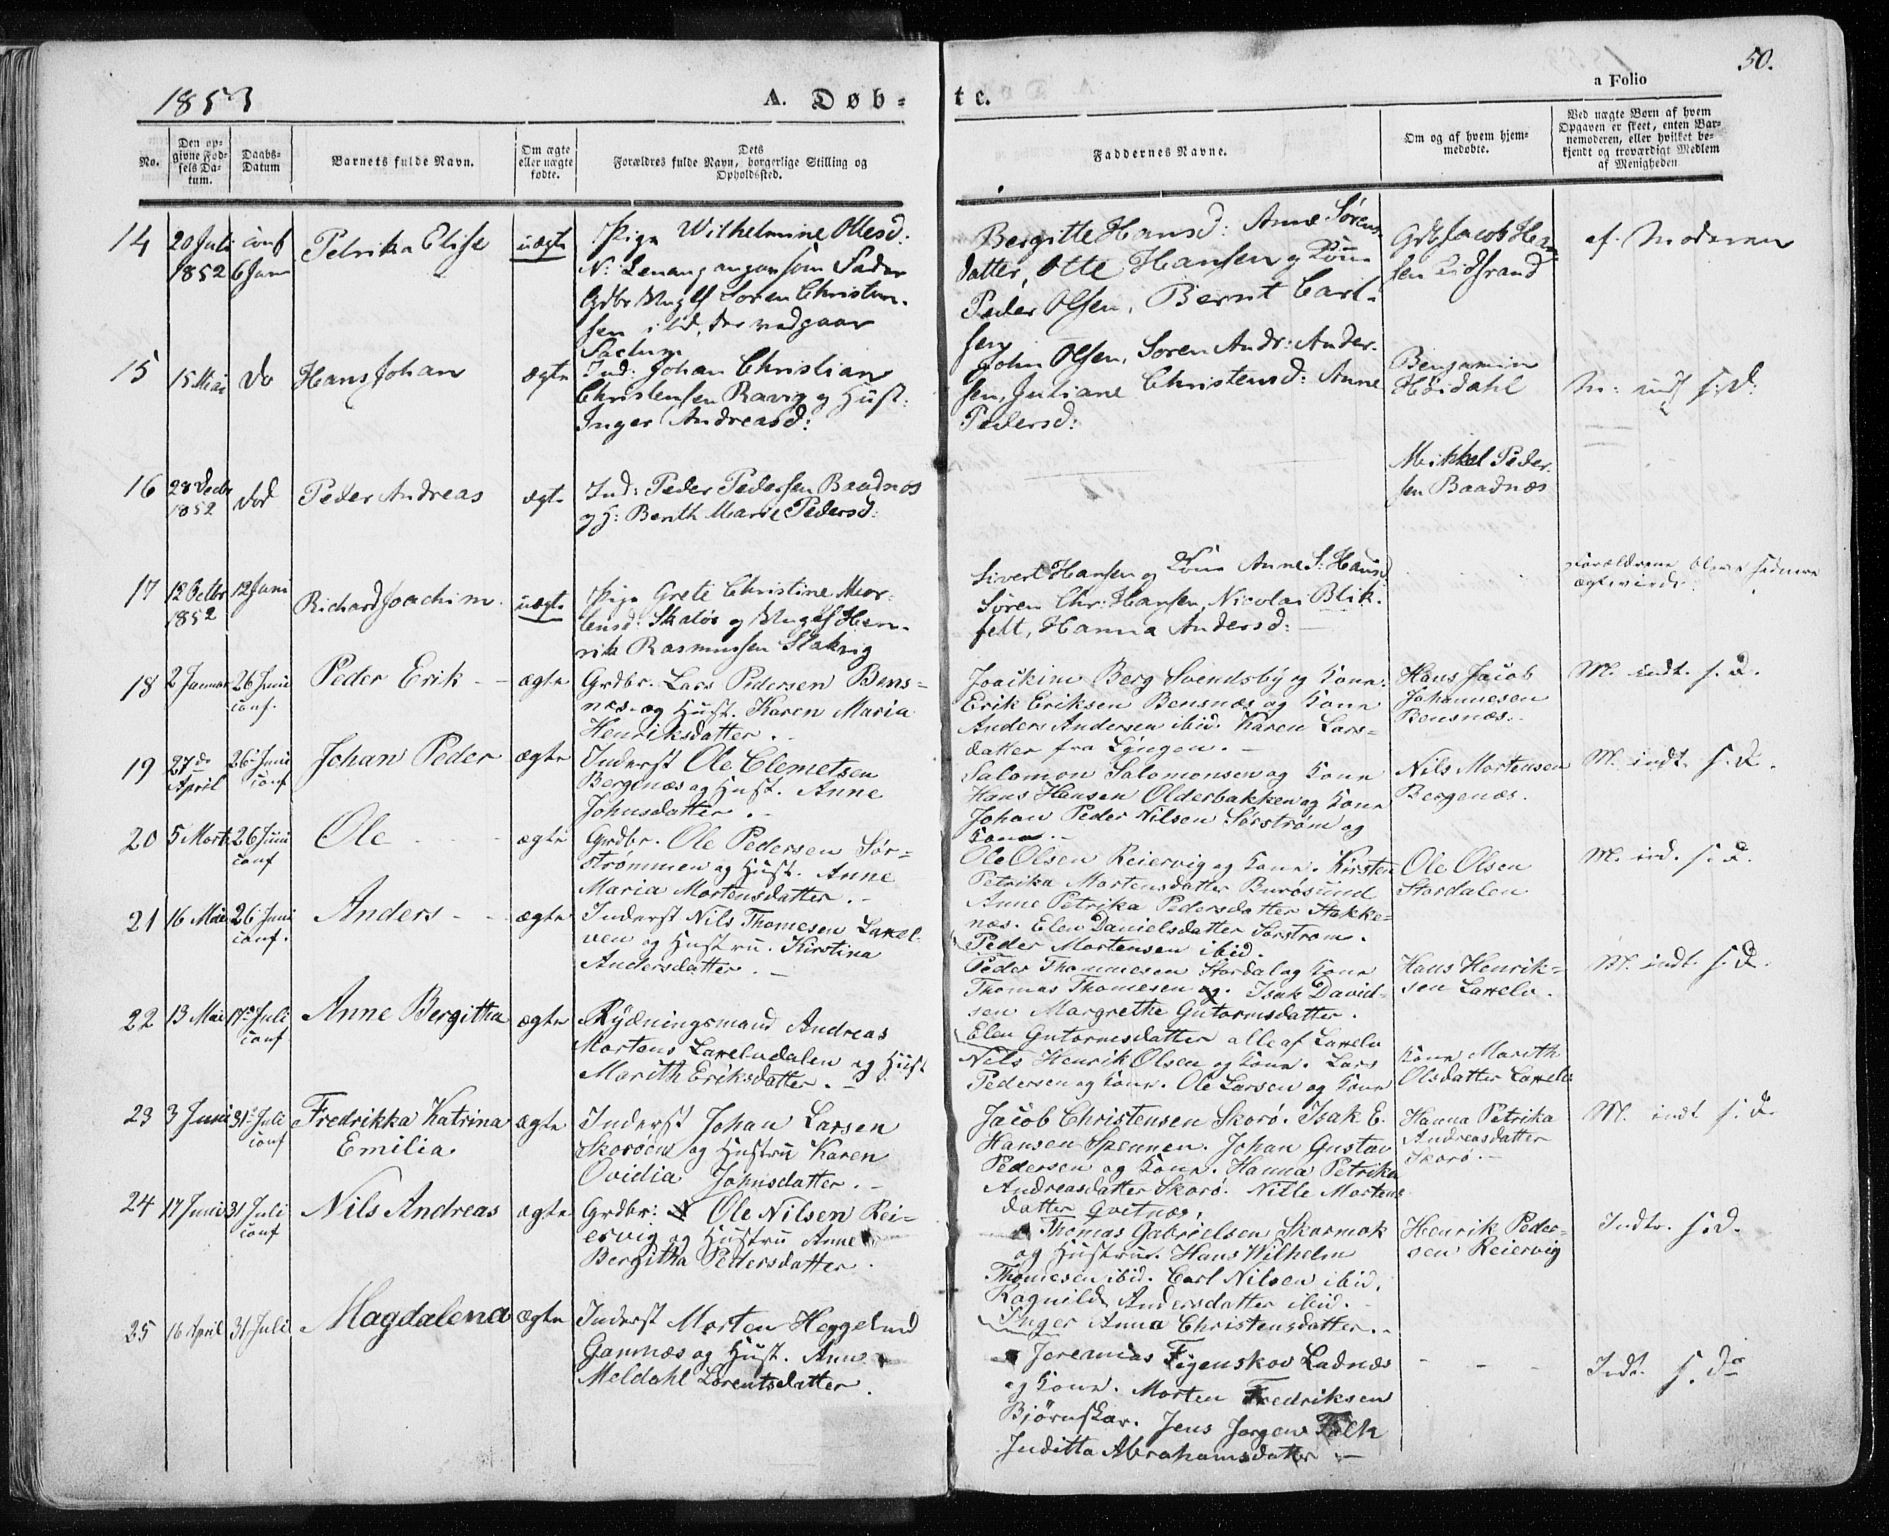 1853
A. Døb-
te.
50.
a Folio
No.
Den op-
givne Fød-
sels Da-
tum.
Daabs-
Datum
Barnets fulde Navn.
Om ægte
eller uægte
fødte.
Dets
Forældres fulde Navn, borgerlige Stilling og
Opholdssted.
Faddernes Navne.
Om og af hvem hjem-
medøbte.
Ved uægte Børn af hvem
Opgaven er skeet, enten Bar-
nemoderen, eller hvilket be-
kjendt og troværdigt Medlem
af Menigheden
14
20 Juli
1852
conf
6 Juni
Petrika Elise
uægte
Pige Wilhelmine Ollesd:
N: Lenang angav som Fader
Grdbr Ungkf Soren Christen-
sen ibid, der vedgaar
Factum
Bergitte Hansd: Anne Sørens-
datter, Otte Hansen og Kone
Peder Olsen, Bernt Carl-
sen
Grb Jacob Han-
sen Lidstrand
af Moderen
15
15 Mai
do
Hans Johan
ægte
Ind: Johan Christian
Christensen Ravig og Hust:
Inger Andreasd:
John Olsen, Soren Andr: Ander-
sen, Juliane Christensd: Anne
Pedersd:
Benjamin
Høidahl
M: indf s: d:
16
28 Decbr
1852
død
Peder Andreas
ægte
Ind: Peder Pedersen Baadnæs
og H: Berith Marie Pedersd:
Mikkel Peder-
sen Baadnæs
17
12 Octbr
1852
12 Juni
Richard Joachim
uægte
Pige Grete Christine Mor-
tensd: Skaløs og Ungkf Hen-
rik Rasmussen Slakvig
Sivert Hansen og Kone Anne S: Hansd
Søren Chr: Hansen, Nicolai Blik-
felt, Hanna Andersd:
Forældrene bleve sidenen
ægteviede
18
2 Januar
26 Juni
conf.
Peder Erik
ægte
Grdbr. Lars Pedersen Bens-
næs og Hust. Karen Maria
Henriksdatter.
Joackim Berg Svendsby og Kone.
Erik Eriksen Bensnæs og Kone
Anders Andersen ibid. Karen Lars-
datter fra Lyngen.
Hans Jacob
Johannesen
Bensnæs.
M. indt. s. d.
19
27de
April
26 Juni
conf
Johan Peder
ægte
Inderst Ole Clemetsen
Bergenæs og Hust. Anne
Johnsdatter.
Salamon Salomonsen og Kone
Hans Hansen Olderbakken og Kone
Johan Peder Nilsen Sørstrøm og
Kone.
Nils Mortensen
Bergenæs.
M. indt. s. d.
20
5 Marts
26 Juni
conf
Ole
ægte
Grdbr. Ole Pedersen Sør-
strømmen og Hust. Anne
Maria Mortensdatter.
Ole Olsen Reiervig og Kone. Kirsten
Petrika Mortensdatter Burøsund
Anne Petrika Pedersdatter Stakke-
næs. Elen Danielsdatter Sørstrøm.
Peder Mortensen ibid.
Ole Olsen
Stordalen
M. ind. s. d.
21
16 Mai
26 Juni
conf.
Anders
ægte
Inderst Nils Thomesen Laxel-
ven og Hustru. Kirstina
Andersdatter.
Peder Thommesen Stordal og Kone
Thomas Thomesen og. Isak David-
sen Margrethe Gutormsdatter.
Elen Gutormsdatter alle af Laxelv
Hans Henrik-
sen Laxelv.
M. indt. s. d.
22
13 Mai
17 Juli
conf
Anne Bergitha
ægte
Rydningsmand Andreas
Mortens Laxelvdalen og Hust
Marith Eriksdatter.
Nils Henrik Olsen og Kone. Lars
Pedersen og Kone. Ole Larsen og Kone
Kone Marith
Olsdatter Laxelv
23
3 Juni
31 Juli
conf
Fredrikka Katrina
Emilia.
ægte
Inderst Johan Larsen
Skorøen og Hustru Karen
Ovidia Johnsdatter.
Jacob Christensen Skorø. Isak E.
Hansen Spennen. Johan Gustav
Pedersen og Kone. Hanna Petrika
Andreasdatter Skorø. Nille Martens-
datter Gvitnæs.
Hanna Petrika
Andreasdatter
Skorø.
M. indt. s. d.
24
17 Juni
31 Juli
conf
Nils Andreas
ægte
Grdbr: Ole Nilsen Rei-
ervig og Hustru Anne
Bergitha Pedersdatter.
Thomas Gabrielsen Skarmok
og Hustru. Hans Wilhelm
Thomesen ibid. Carl Nilsen ibid.
Ragnild Andersdatter ibid.
Inger Anna Christensdatter.
Henrik Peder-
sen Reiervig
Indt. s. d.
25
16 April
31 Juli
Magdalena
ægte
Inderst Morten Heggelund
Gamnæs og Hust. Anne
Meldahl Lorentsdatter.
Jeremias Figenskov Ladnæs
og Kone. Morten Fredriksen
Bjørnskar. Jens Jørgen Falk
Juditta Abrahamsdatter
Indt. s. d.